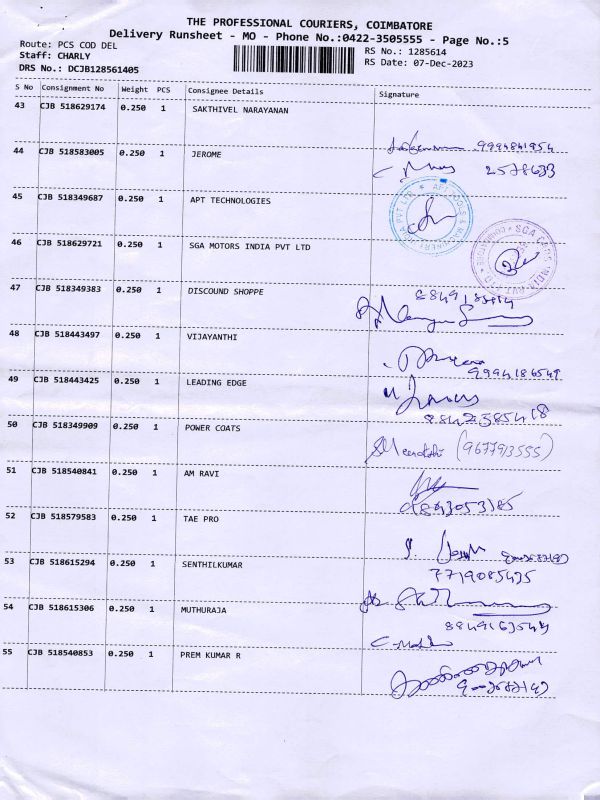 THE PROFESSIONAL COURIERS, COIMBATORE
Delivery Runsheet - MO - Phone No.:0422-3505555 - Page No.:5
Route: PCS COD DEL
RS No.: 1285614
Staff: CHARLY
RS Date: 07-Dec-2023
DRS No.: DCJB128561405
S No Consignment No Weight PCS Consignee Details Signature
43 CJB 518629174 0.250 1 SAKTHIVEL NARAYANAN
44 CJB 518583005 0.250 1 JEROME
2578633
45 CJB 518349687 0.250 1 APT TECHNOLOGIES
46 CJB 518629721 0.250 1 SGA MOTORS INDIA PVT LTD
47 CJB 518349383 0.250 1 DISCOUND SHOPPE
48 CJB 518443497 0.250 1 VIJAYANTHI
49 CJB 518443425 0.250 1 LEADING EDGE
8842385418
50 CJB 518349909 0.250 1 POWER COATS
(9677913555)
51 CJB 518540841 0.250 1 AM RAVI
52 CJB 518579583 0.250 1 TAE PRO
53 CJB 518615294 0.250 1 SENTHILKUMAR
7719085435
54 CJB 518615306 0.250 1 MUTHURAJA
55 CJB 518540853 0.250 1 PREM KUMAR R